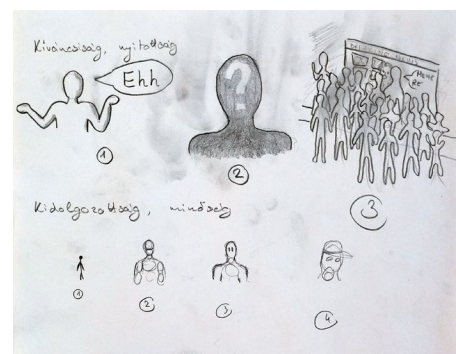 Kíváncsiság, nyitottság
Ehh
?
1
2
3
Kidolgozottság, minőség
1
2
3
4